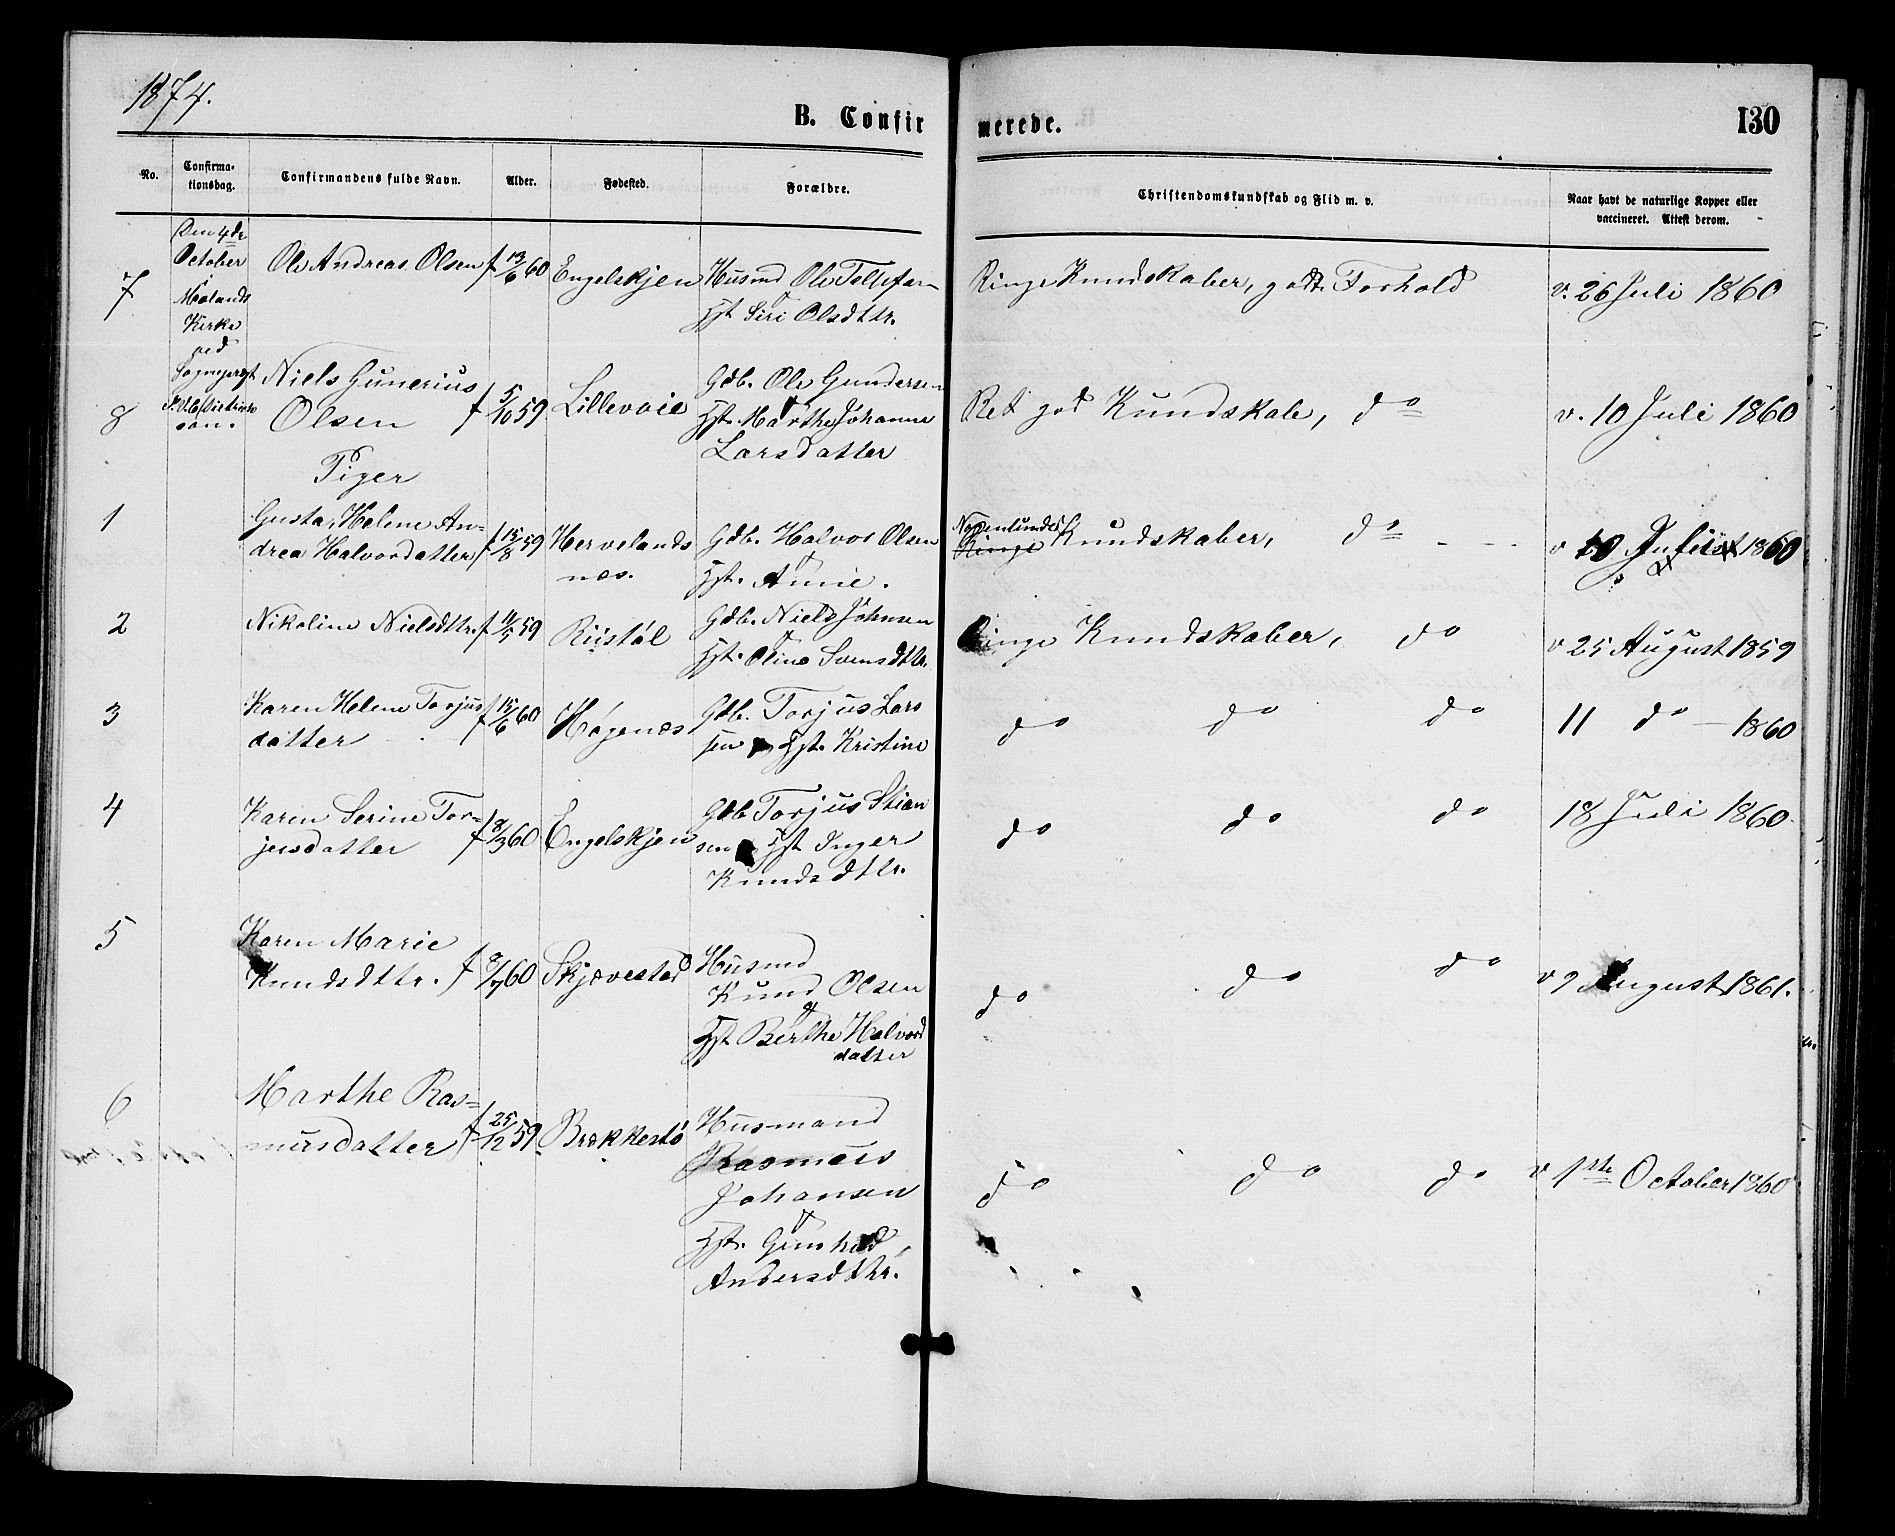 1874.
B. Confirmerede.
130
No.
Confirma-
tionsdag.
Confirmandens fulde Navn.
Alder.
Fødested.
Forældre.
Christendomskundskab og Flid m. v.
Naar havt de naturlige Kopper eller
vaccineret. Attest derom.
Den 4de
October
i
Mølands
Kirke
ved
Sognepræst
7
Ole Andreas Olsen
f 13/6 60
Engelskjen
Husmd Ole Tellefsen
Hst Siri Olsdttr.
Ringe Kundskaber, godt Forhold
v. 26 Juli 1860
8
Niels Gunerius
Olsen
f 5/10 59
Lillevaie
Gdb. Ole Gundersen
Hst. Marthe Johanne
Larsdatter
Ret god Kundskab, do
v. 10 Juli 1860
Piger
1
Gusta, Helene An-
drea Halvorsdatter
f 15/8 59
Hervelands
nes.
Gdb. Halvor Olsen
Hst. Annie.
Nogenlunde
Ringe Kundskaber, do
v 10 Juli 1860
2
Nikoline Nielsdttr.
f 11/5 59
Riistøl
Gdb. Niels Johnsen
Hst. Oline Svensdttr.
Ringe Kundskaber, do
v 25 August 1859
3
Karen Helene Torjus
datter
f 15/6 60
Høgenes
Gdb. Torjus Lars
sen og Hst. Kristine
do do do
11 do - 1860
4
Karen Serine Tor-
jusdatter
f 8/3 60
Engelskjen
Gdb Torjus Stian
sen og Hst Inger
Knudsdttr.
do do do
18 Juli 1860.
5
Karen Marie
Knudsdttr.
f 8/7 60
Skjævestad
Husmd
Knud Olsen
Hst Berthe Halvors
datter
do do do
v 9 August 1861.
6
Marthe Ras-
musdatter
f 25/12 59
Brækkestø
Husmand
Rasmus
Johansen
Hst. Gunhild
Andersdttr.
do do do
v 1ste October 1860